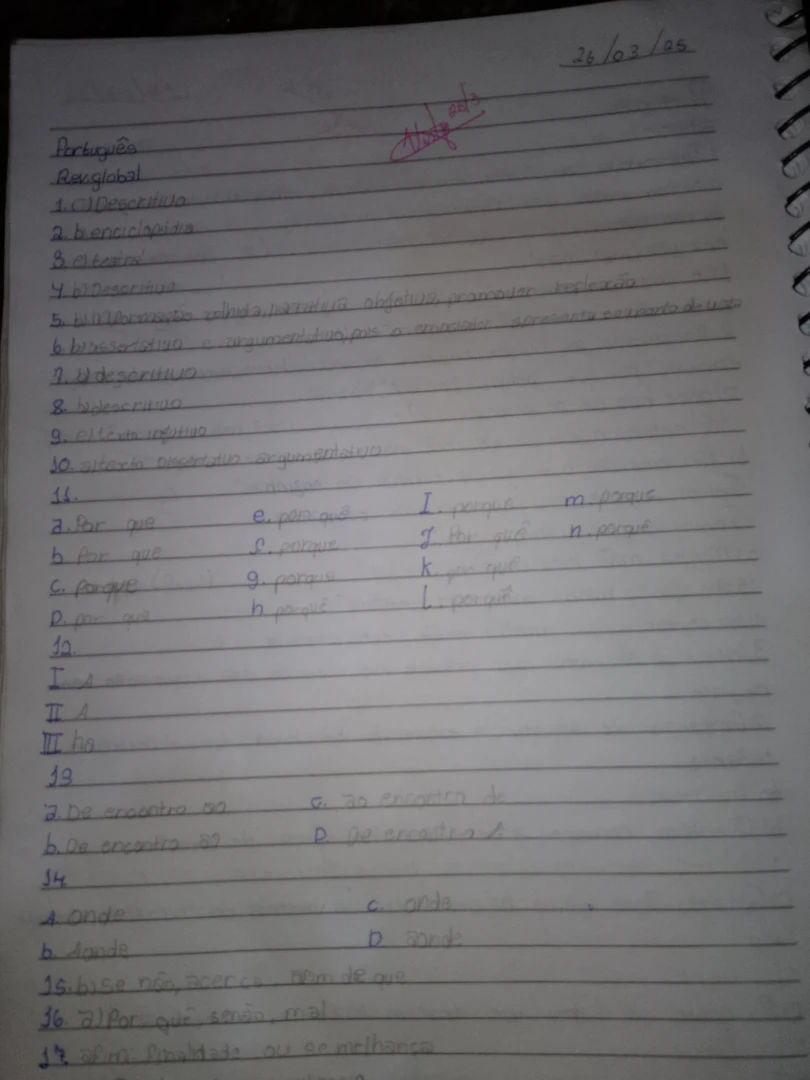 26/03/25
Português
Rev. global
1. c) Descritivo
2. b) enciclopédia
3. e) teatral
4. b) Descritivo
5. b) Informação colhida, narrativa objetiva, promover reflexão
6. b) assertativo e argumentativo, pois o enunciador apresenta seu ponto de vista
7. b) descritivo
8. b) descritivo
9. e) texto injutivo
10. a) texto dissertativo argumentativo
11.
a. Por que e. por quê I. porque m. porque
b Por que f. porque J. Por quê n. porquê
c. porque g. porque k por quê
D. por que h porquê l. porquê
12
I A
II A
III há
13
a. De encontro ao c. ao encontro de
b. De encontro ao D. De encontro A
14
A onde c. onde
b. Aonde D aonde
15. b) se não, acerca, afim de que
16. a) Por quê, senão, mal
17. afim: finalidade ou semelhança